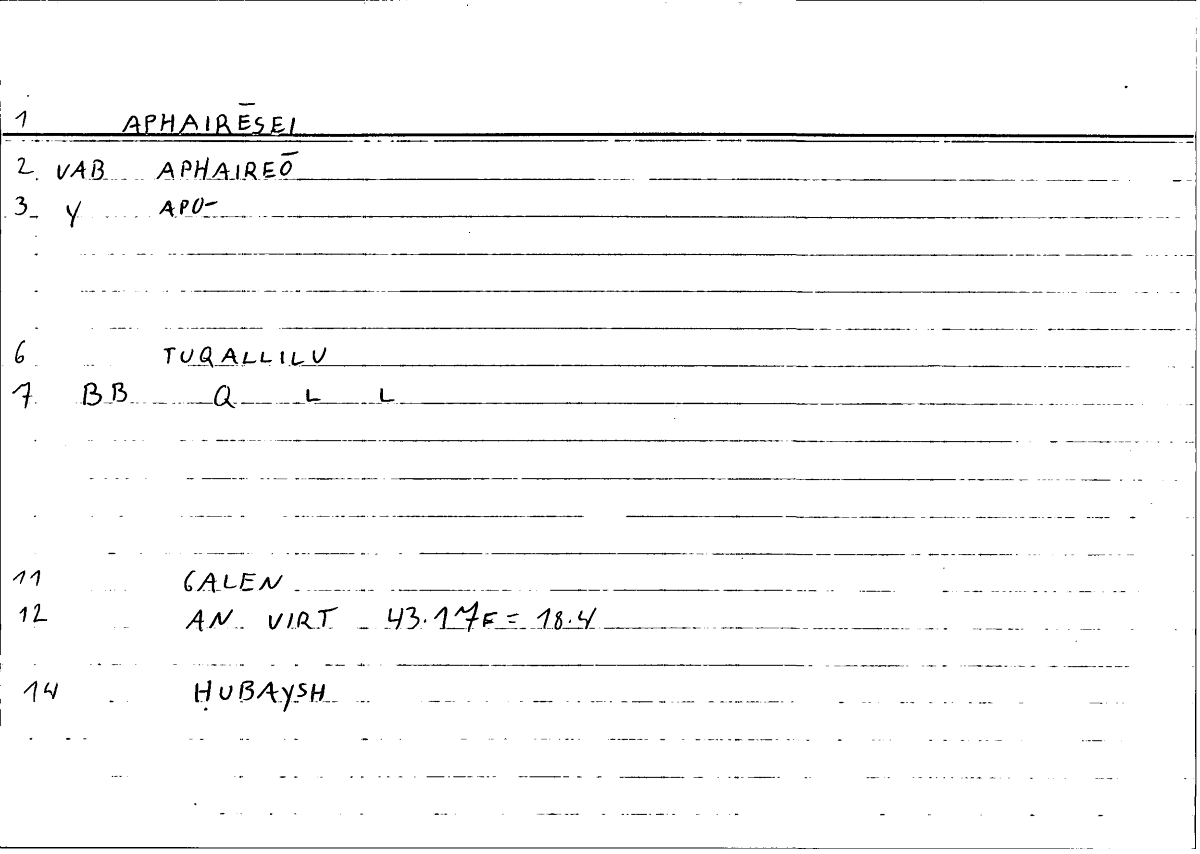 1 APHAIRĒSEI
2. VAB APHAIREŌ
3 Y APO-
6 TUQALLILU
7 BB Q L L
11 GALEN
12 AN. VIRT 43.17F = 18.4
14 ḤUBAYSH